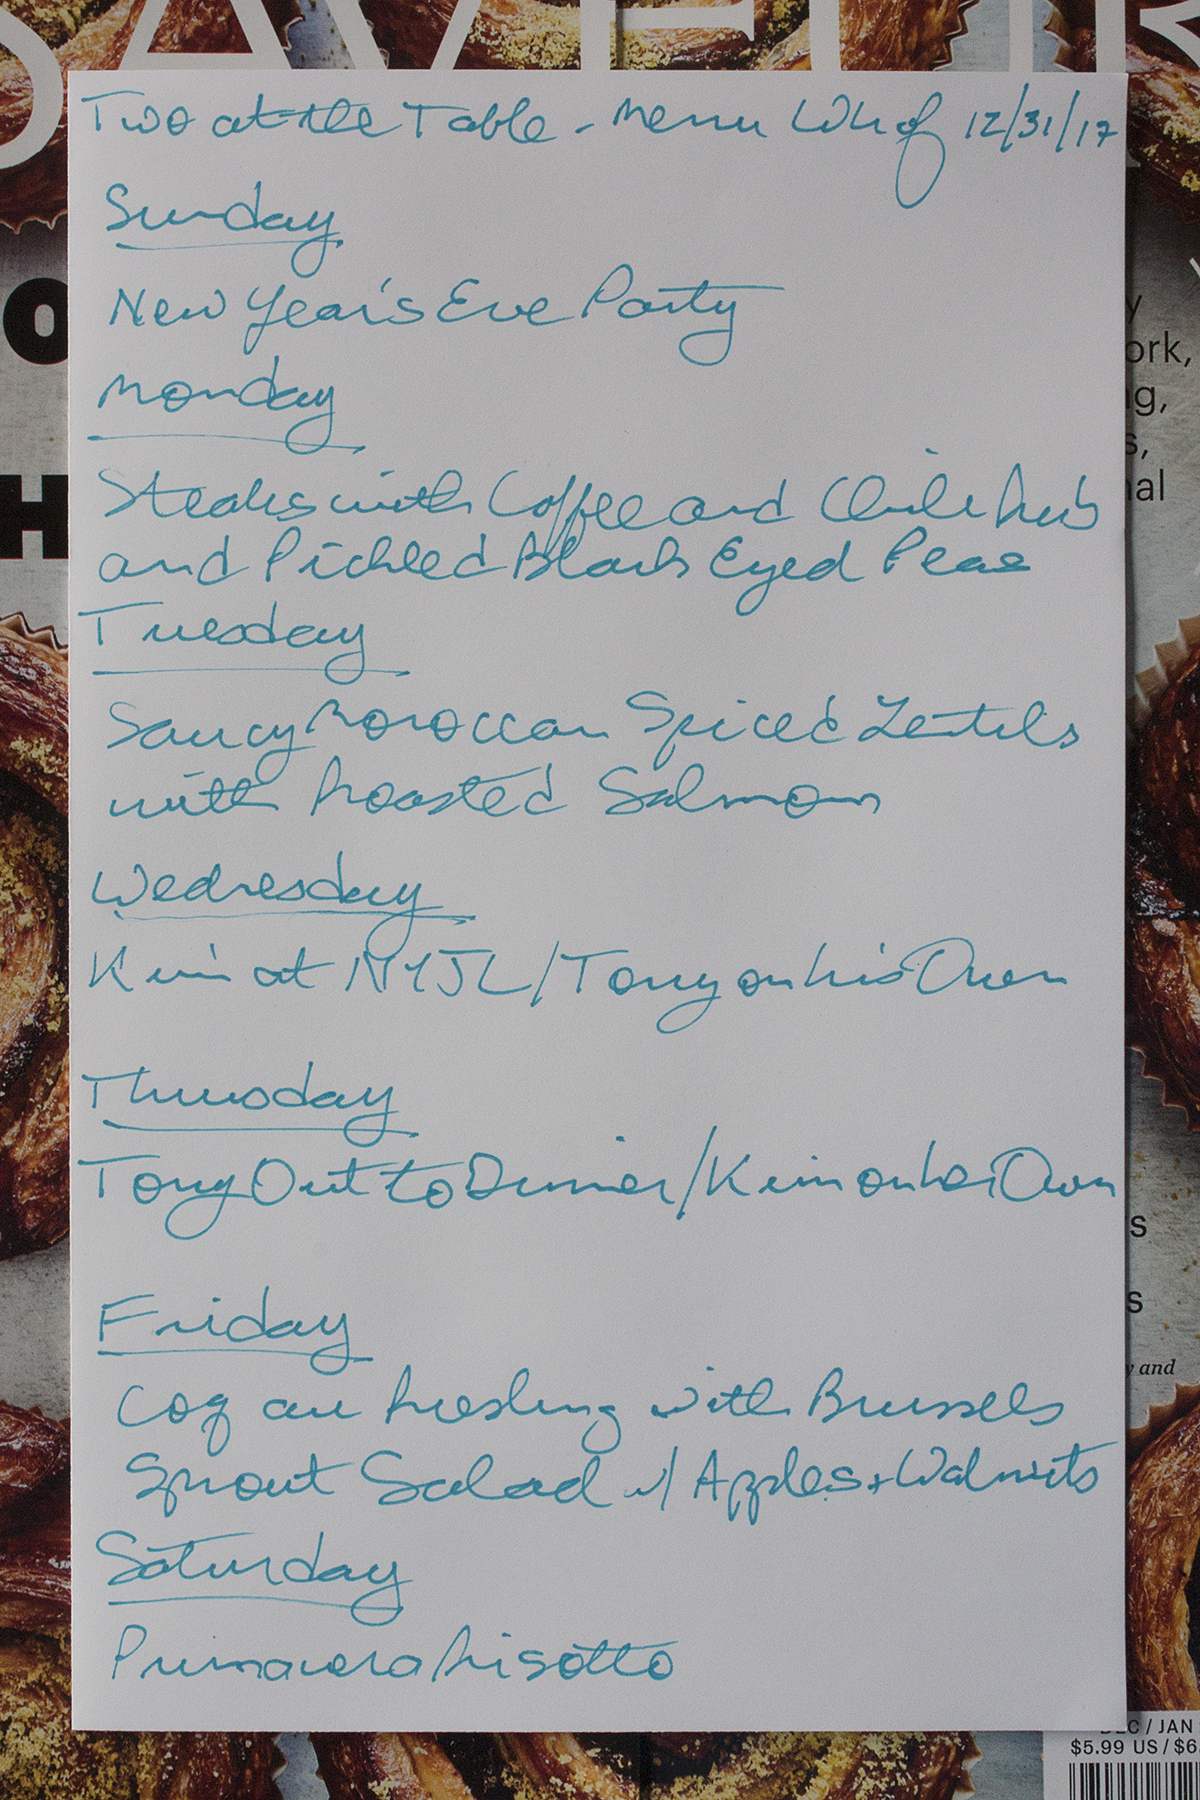 SAVEUR
Two at the Table - Menu Wk of 12/31/17
Sunday
New Year's Eve Party
O
y
ork,
Monday
ng,
s,
Steaks with Coffee and Chile Rub
nal
H
and Pickled Black Eyed Peas
Tuesday
Saucy Moroccan Spiced Lentils
with Roasted Salmon
Wednesday
Kim at NYJL/Tony on his Own
Thursday
Tony Out to Dinner/Kim on her Own
s
s
Friday
y and
Coq au Riesling with Brussels
Sprout Salad w/ Apples + Walnuts
Saturday
Primavera Risotto
DEC / JAN
$5.99 US / $6.